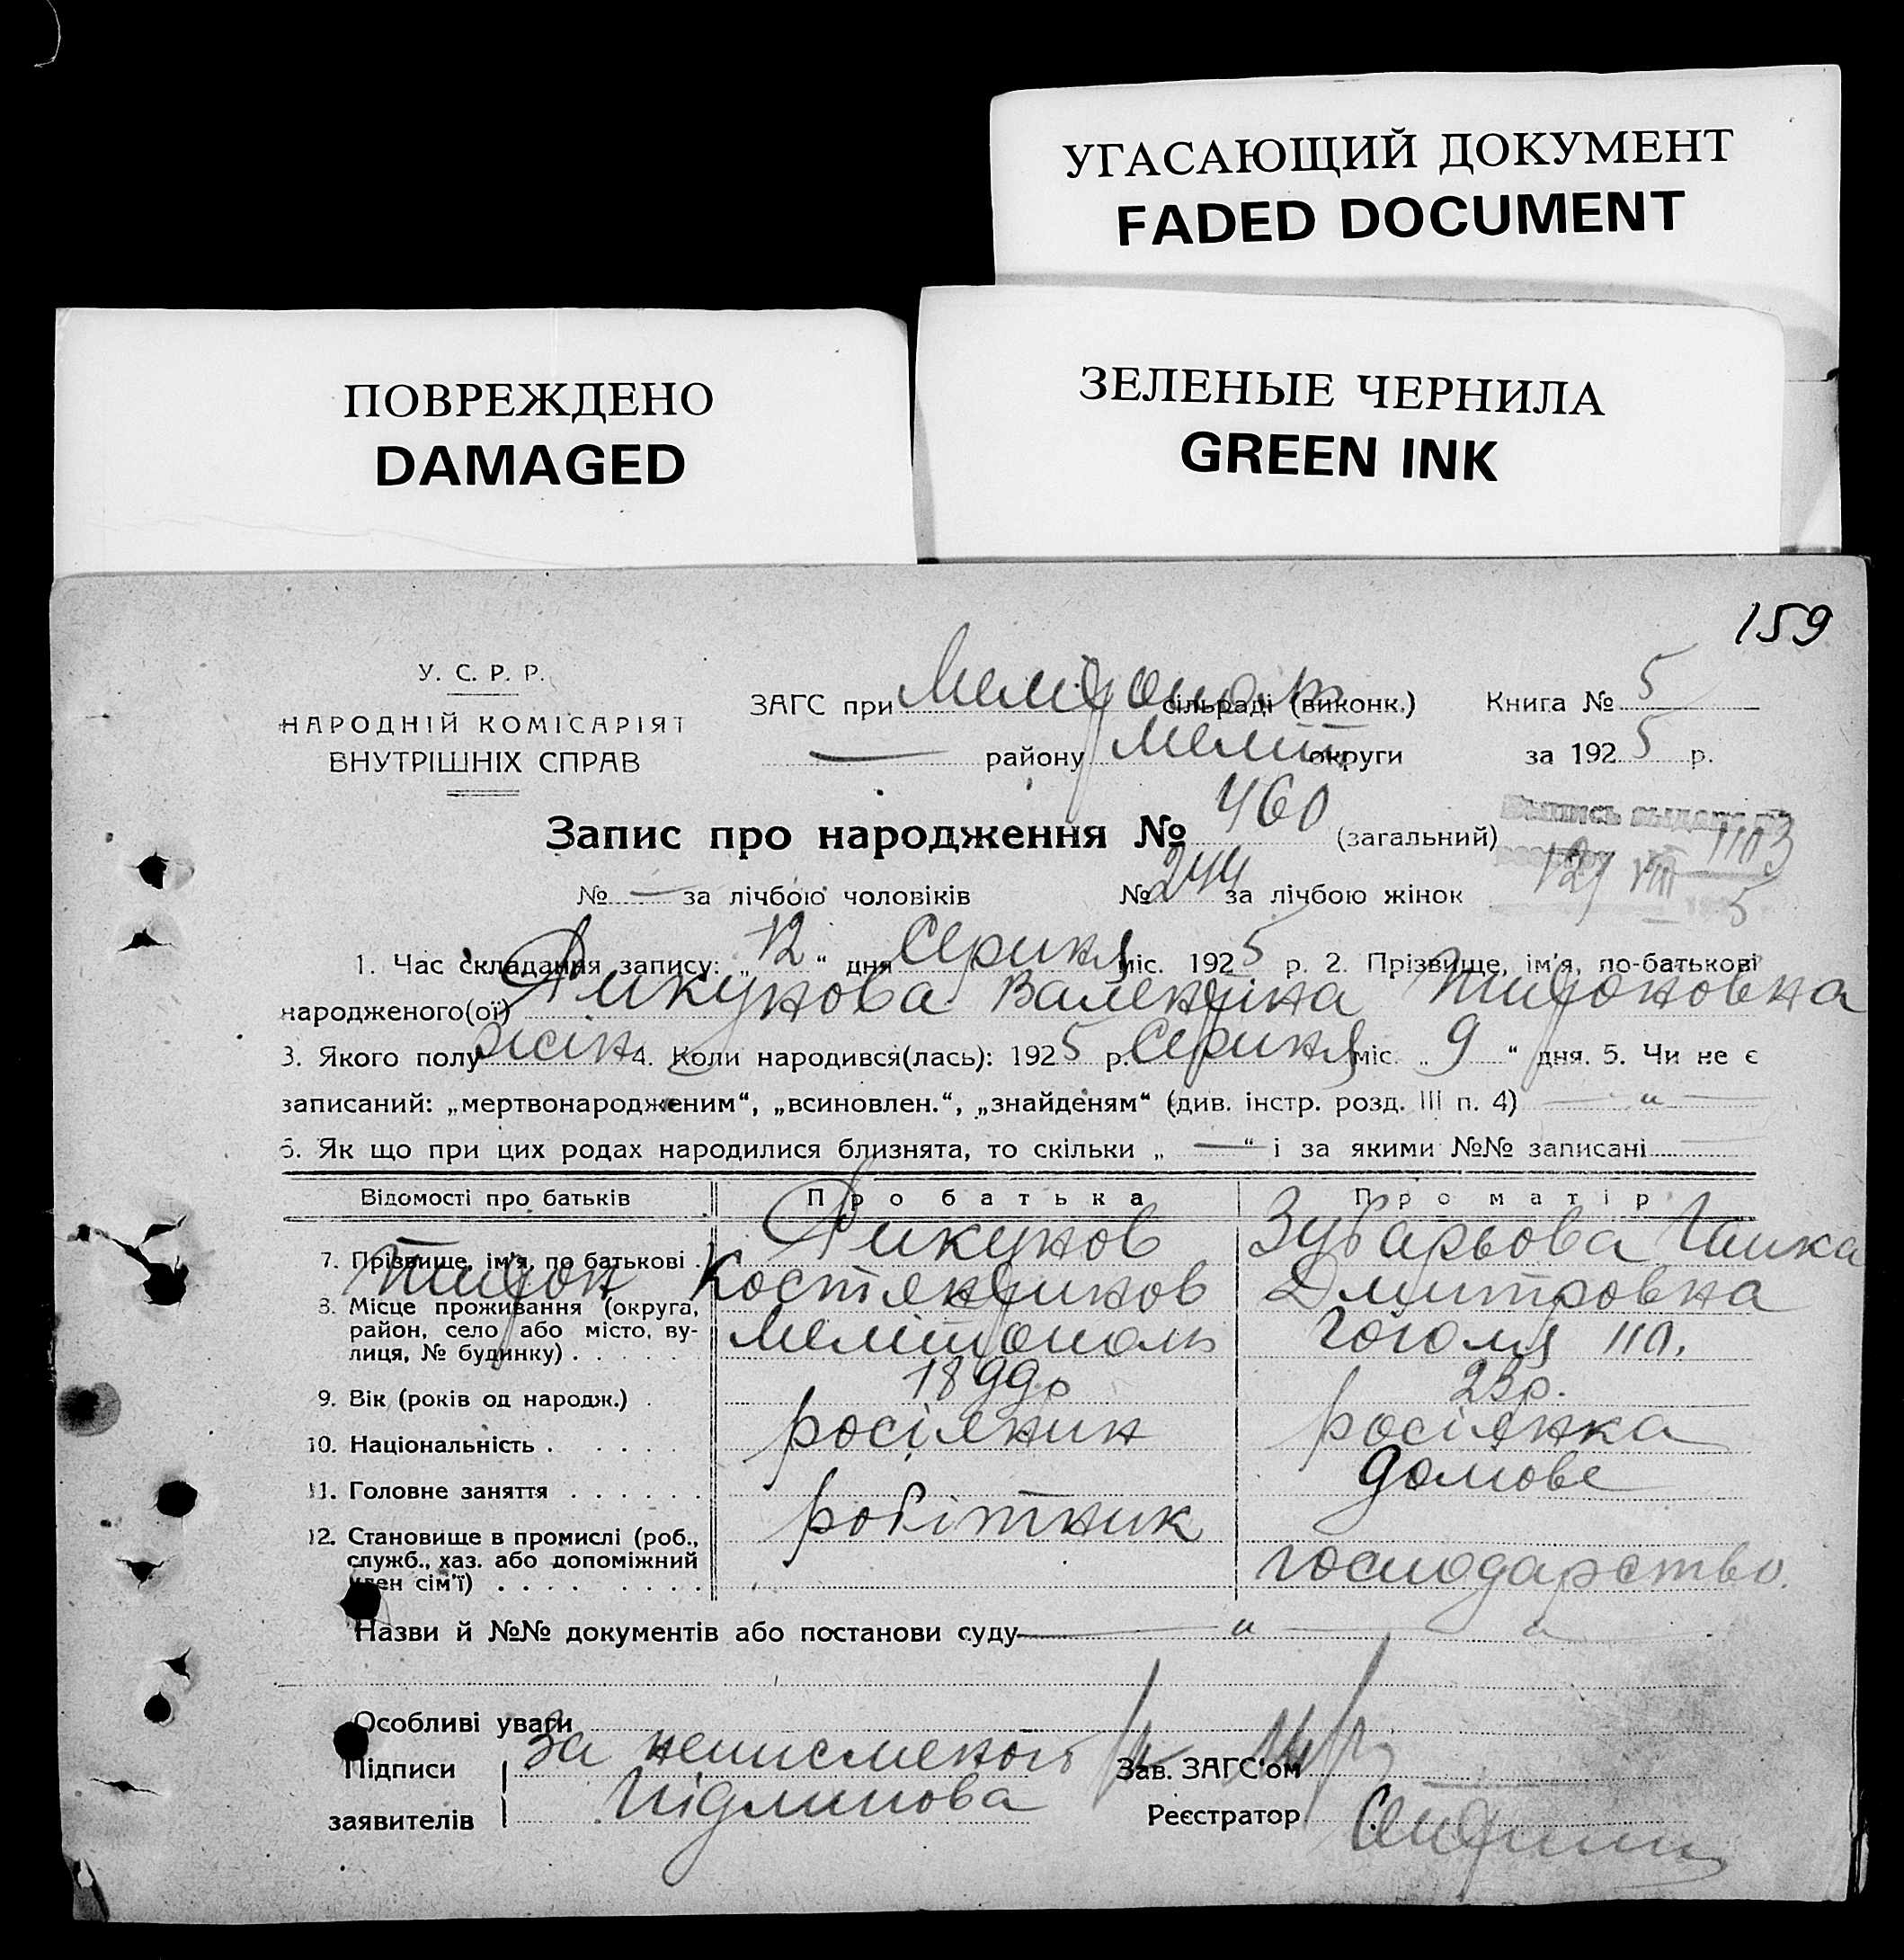 УГАСАЮЩИЙ ДОКУМЕНТ
FADED DOCUMENT
ПОВРЕЖДЕНО
DAMAGED
ЗЕЛЕНЫЕ ЧЕРНИЛА
GREEN INK
159
У. С. Р. Р.
НАРОДНІЙ КОМІСАРІЯТ
ВНУТРІШНІХ СПРАВ
ЗАГС при сільраді (виконк.) Книга № 5
— району Меліт округи за 1925 р.
Запис про народження № 460 (загальний)
Выпись выдана 1103
№ — за лічбою чоловіків № 244 за лічбою жінок 12/VIII 5
1. Час складання запису: „12“ дня Серпня міс. 1925 р. 2. Прізвище, ім'я, по-батькові
народженого(ої) Пикунова Валентіна
3. Якого полу жін 4. Коли народився(лась): 1925 р. Серпня міс. „9“ дня. 5. Чи не є
записаний: „мертвонародженим“, „всиновлен.“, „знайденям“ (див. інстр. розд. III п. 4) — „ —
6. Як що при цих родах народилися близнята, то скільки „ — “ і за якими №№ записані
Відомості про батьків Про батька Про матір
7. Прізвище, ім'я, по батькові Пикунов Зубарьова
Костянтинов Дмитровна
8. Місце проживання (округа,
район, село або місто, ву-
лиця, № будинку) Мелітополь Гоголя 110.
9. Вік (років од народж.) 1899р 23р.
10. Національність росіянин росіянка
11. Головне заняття робітник домове
12. Становище в промислі (роб.,
служб., хаз. або допоміжний
член сім'ї) господарство.
Назви й №№ документів або постанови суду — „ — „
Особливі уваги
Підписи За неписменого Зав. ЗАГС'ом
заявителів Реєстратор